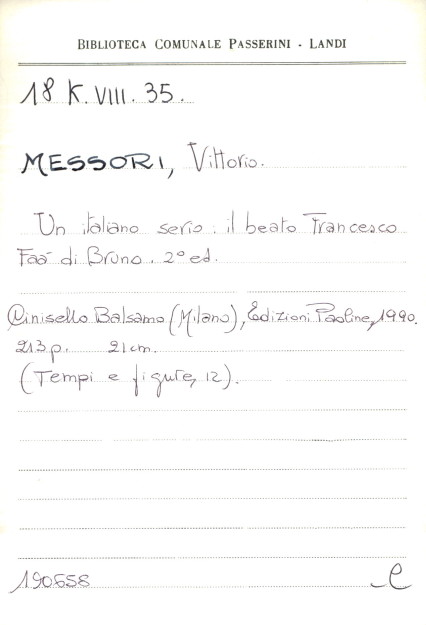 BIBLIOTECA COMUNALE PASSERINI - LANDI
18 K. VIII. 35.
MESSORI, Vittorio.
Un italiano serio : il beato Francesco
Faà di Bruno. 2° ed.
Cinisello Balsamo (Milano), Edizioni Paoline, 1990.
213 p. 21 cm.
(Tempi e figure, 12).
190658
e